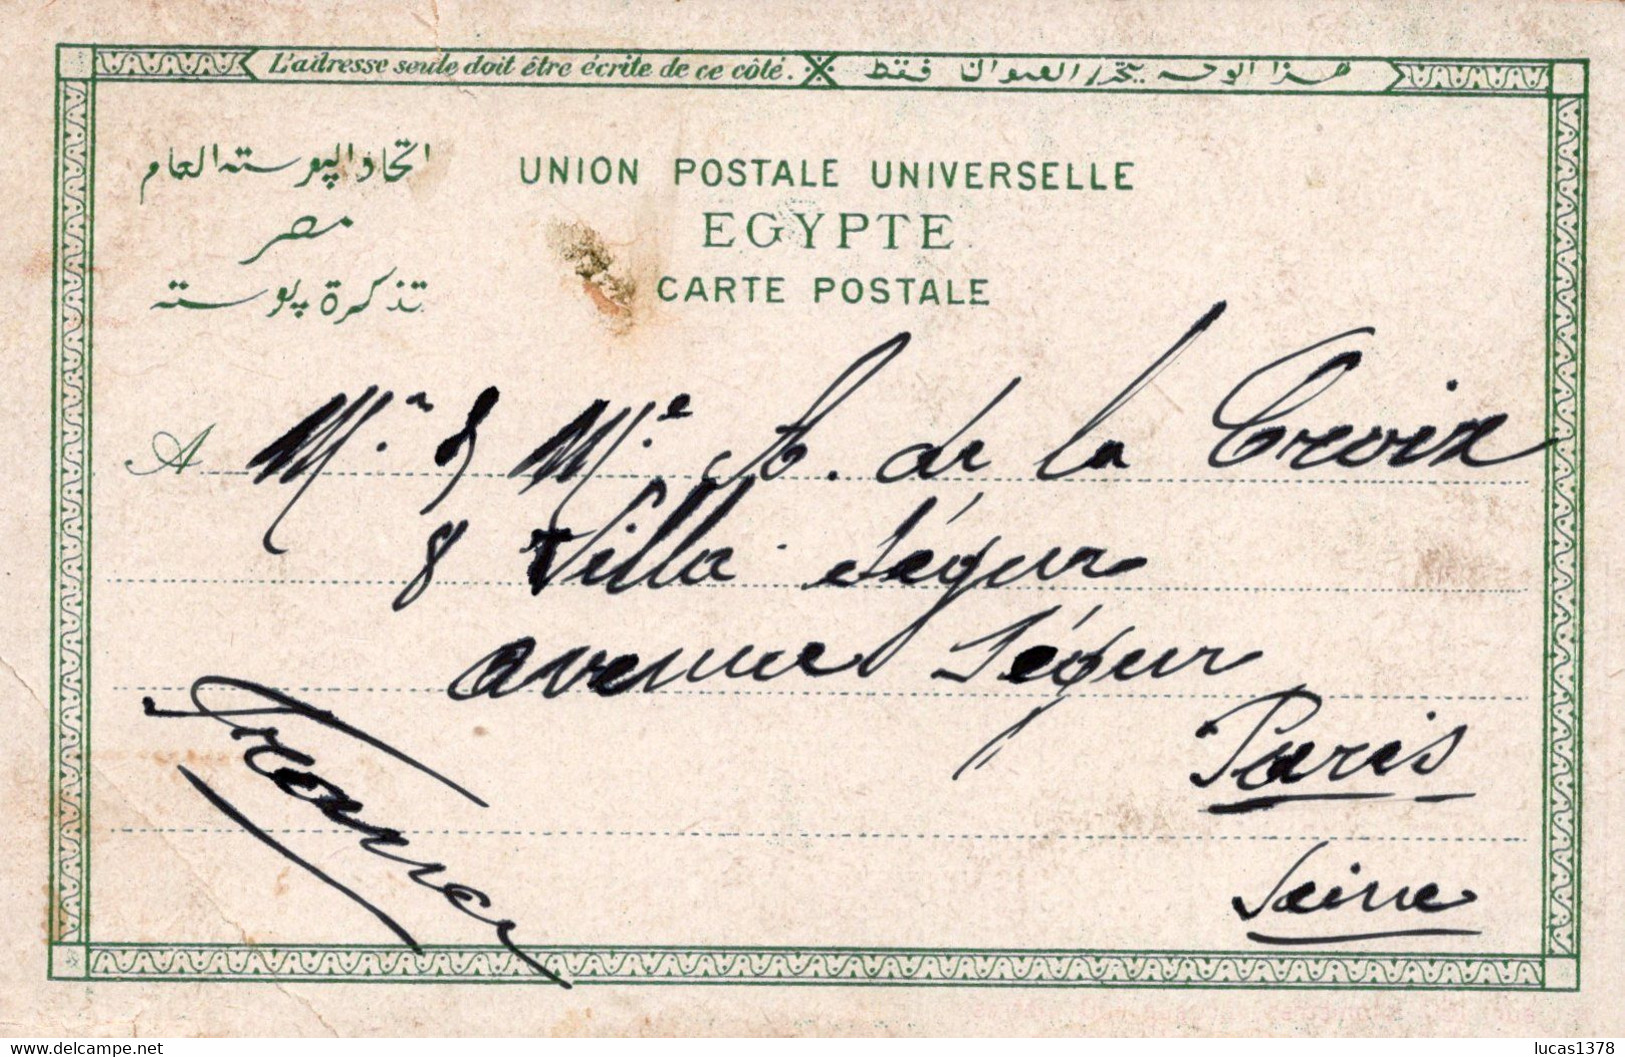 L'adresse seule doit être écrite de ce côté. هذا الوجه يحرر العنوان فقط
اتحاد البوسته العام
مصر
تذكرة بوسته
UNION POSTALE UNIVERSELLE
EGYPTE
CARTE POSTALE
A Mr. & Me. A. de la Croix
8 Villa Ségur
avenue Ségur
Paris
Seine
France
delcampe.net
lucas1378